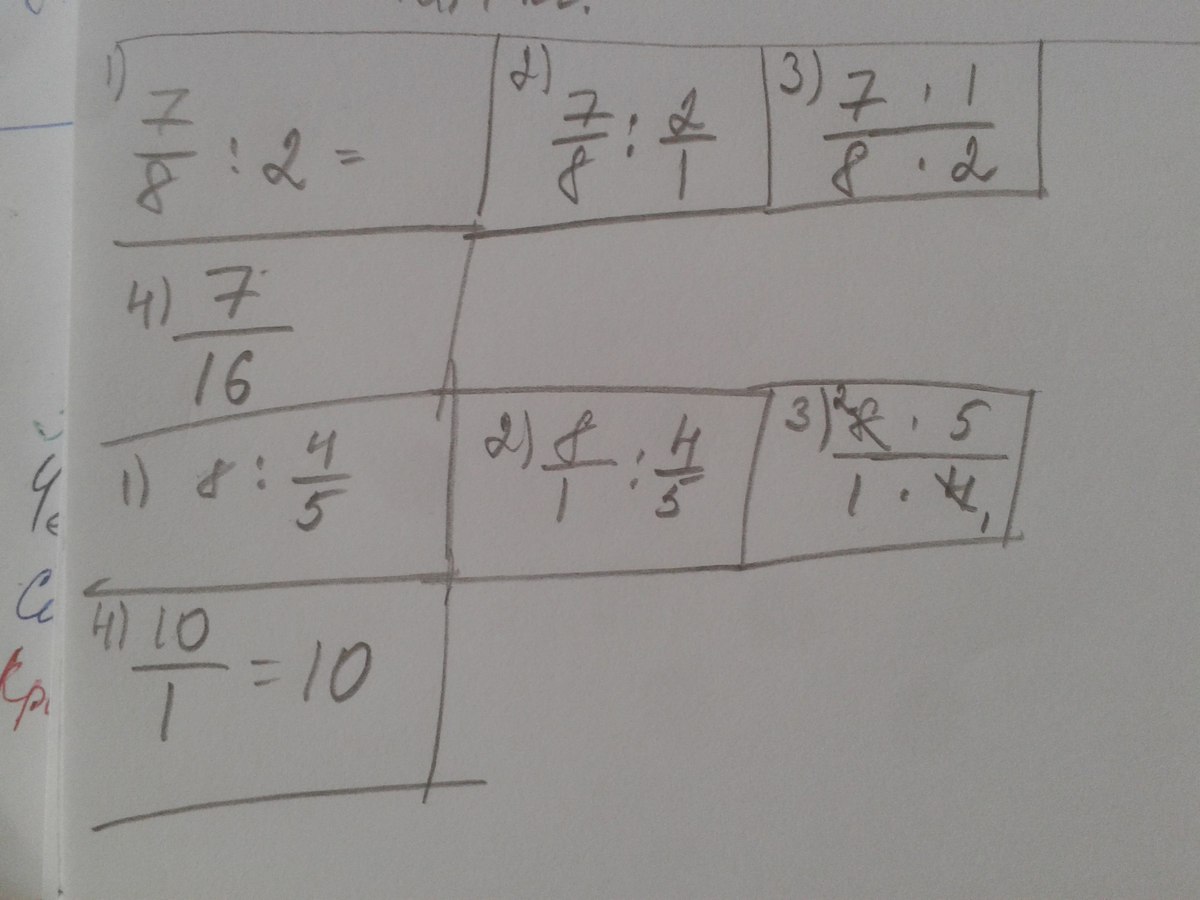 1) 7/8 : 2 =
2) 7/8 : 2/1
3) 7 · 1 / 8 · 2
4) 7/16
1) 8 : 4/5
2) 8/1 : 4/5
3) 2 8 · 5 / 1 · 4 1
4) 10/1 = 10